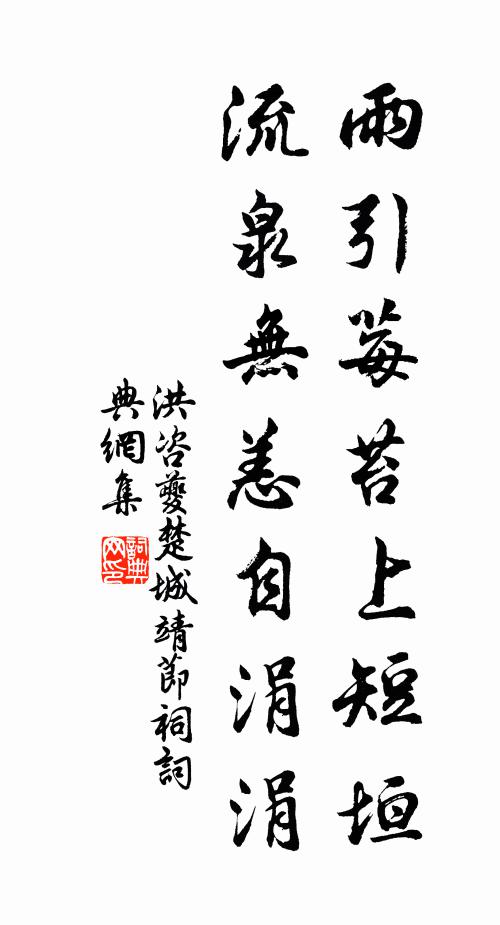 雨引莓苔上短垣
流泉無恙自涓涓
洪咨夔楚城靖節祠詞
典網集
詞典網印